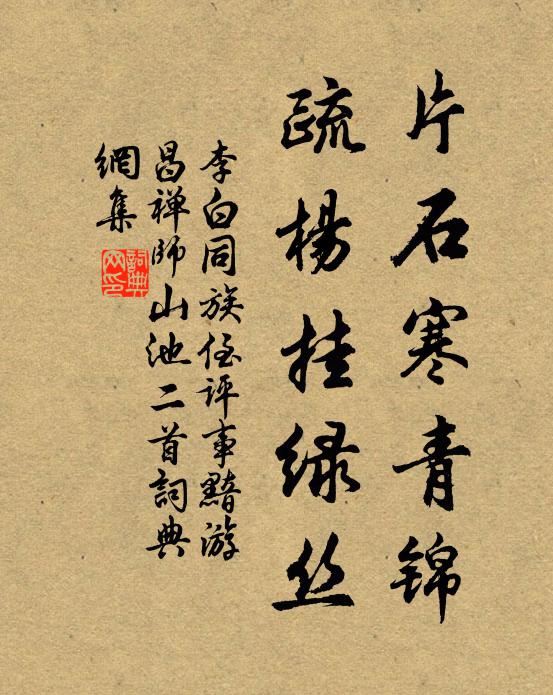 片石寒青锦
疏楊挂绿丝
李白同族侄评事黯游
昌禅师山池二首詞典
網集
詞典
网印